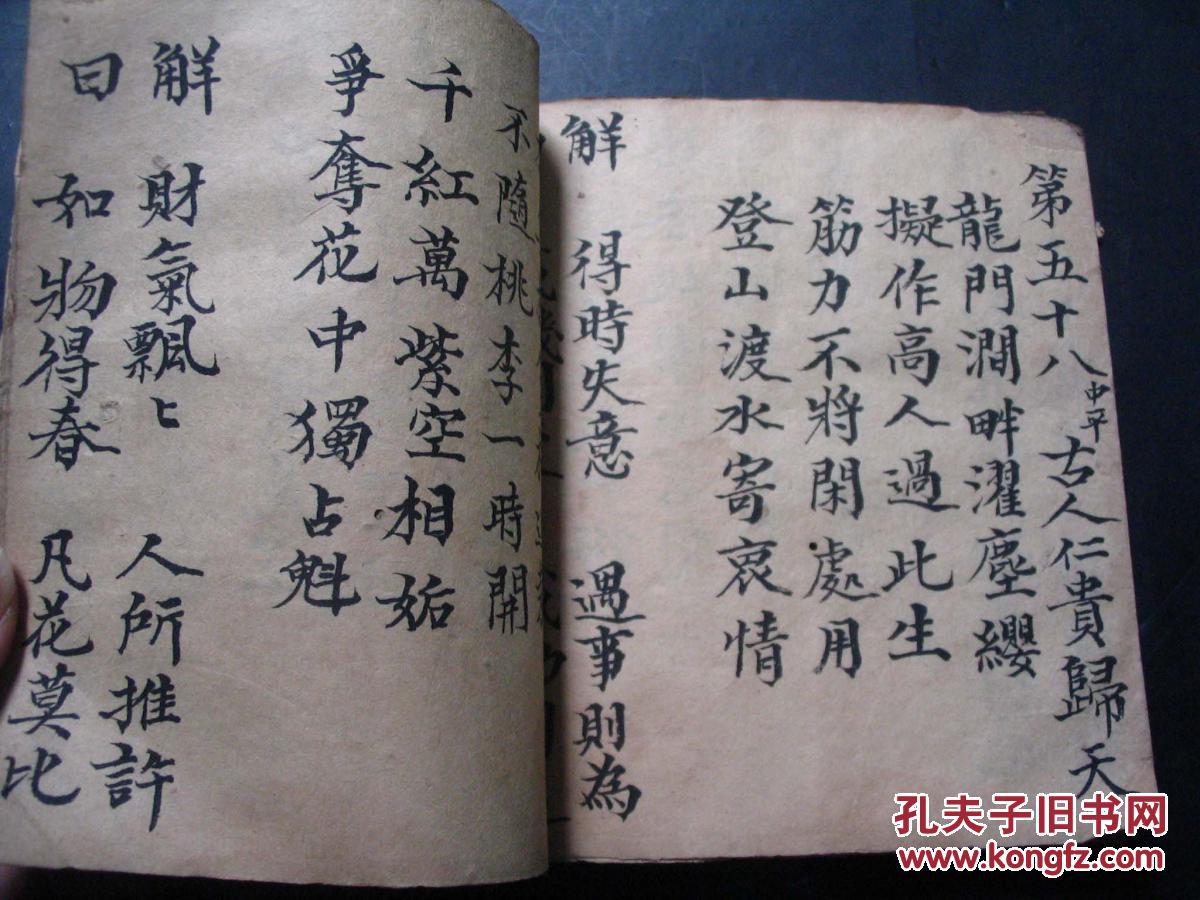 第五十八 中平 古人仁貴歸天
龍門澗畔濯塵纓
擬作高人過此生
筋力不將閑處用
登山渡水寄哀情
解 得時失意 遇事則為
不隨桃李一時開
千紅萬紫空相妬
爭奪花中獨占魁
解 財氣飄〻 人所推許
曰 如物得春 凡花莫比
孔夫子旧书网
www.kongfz.com